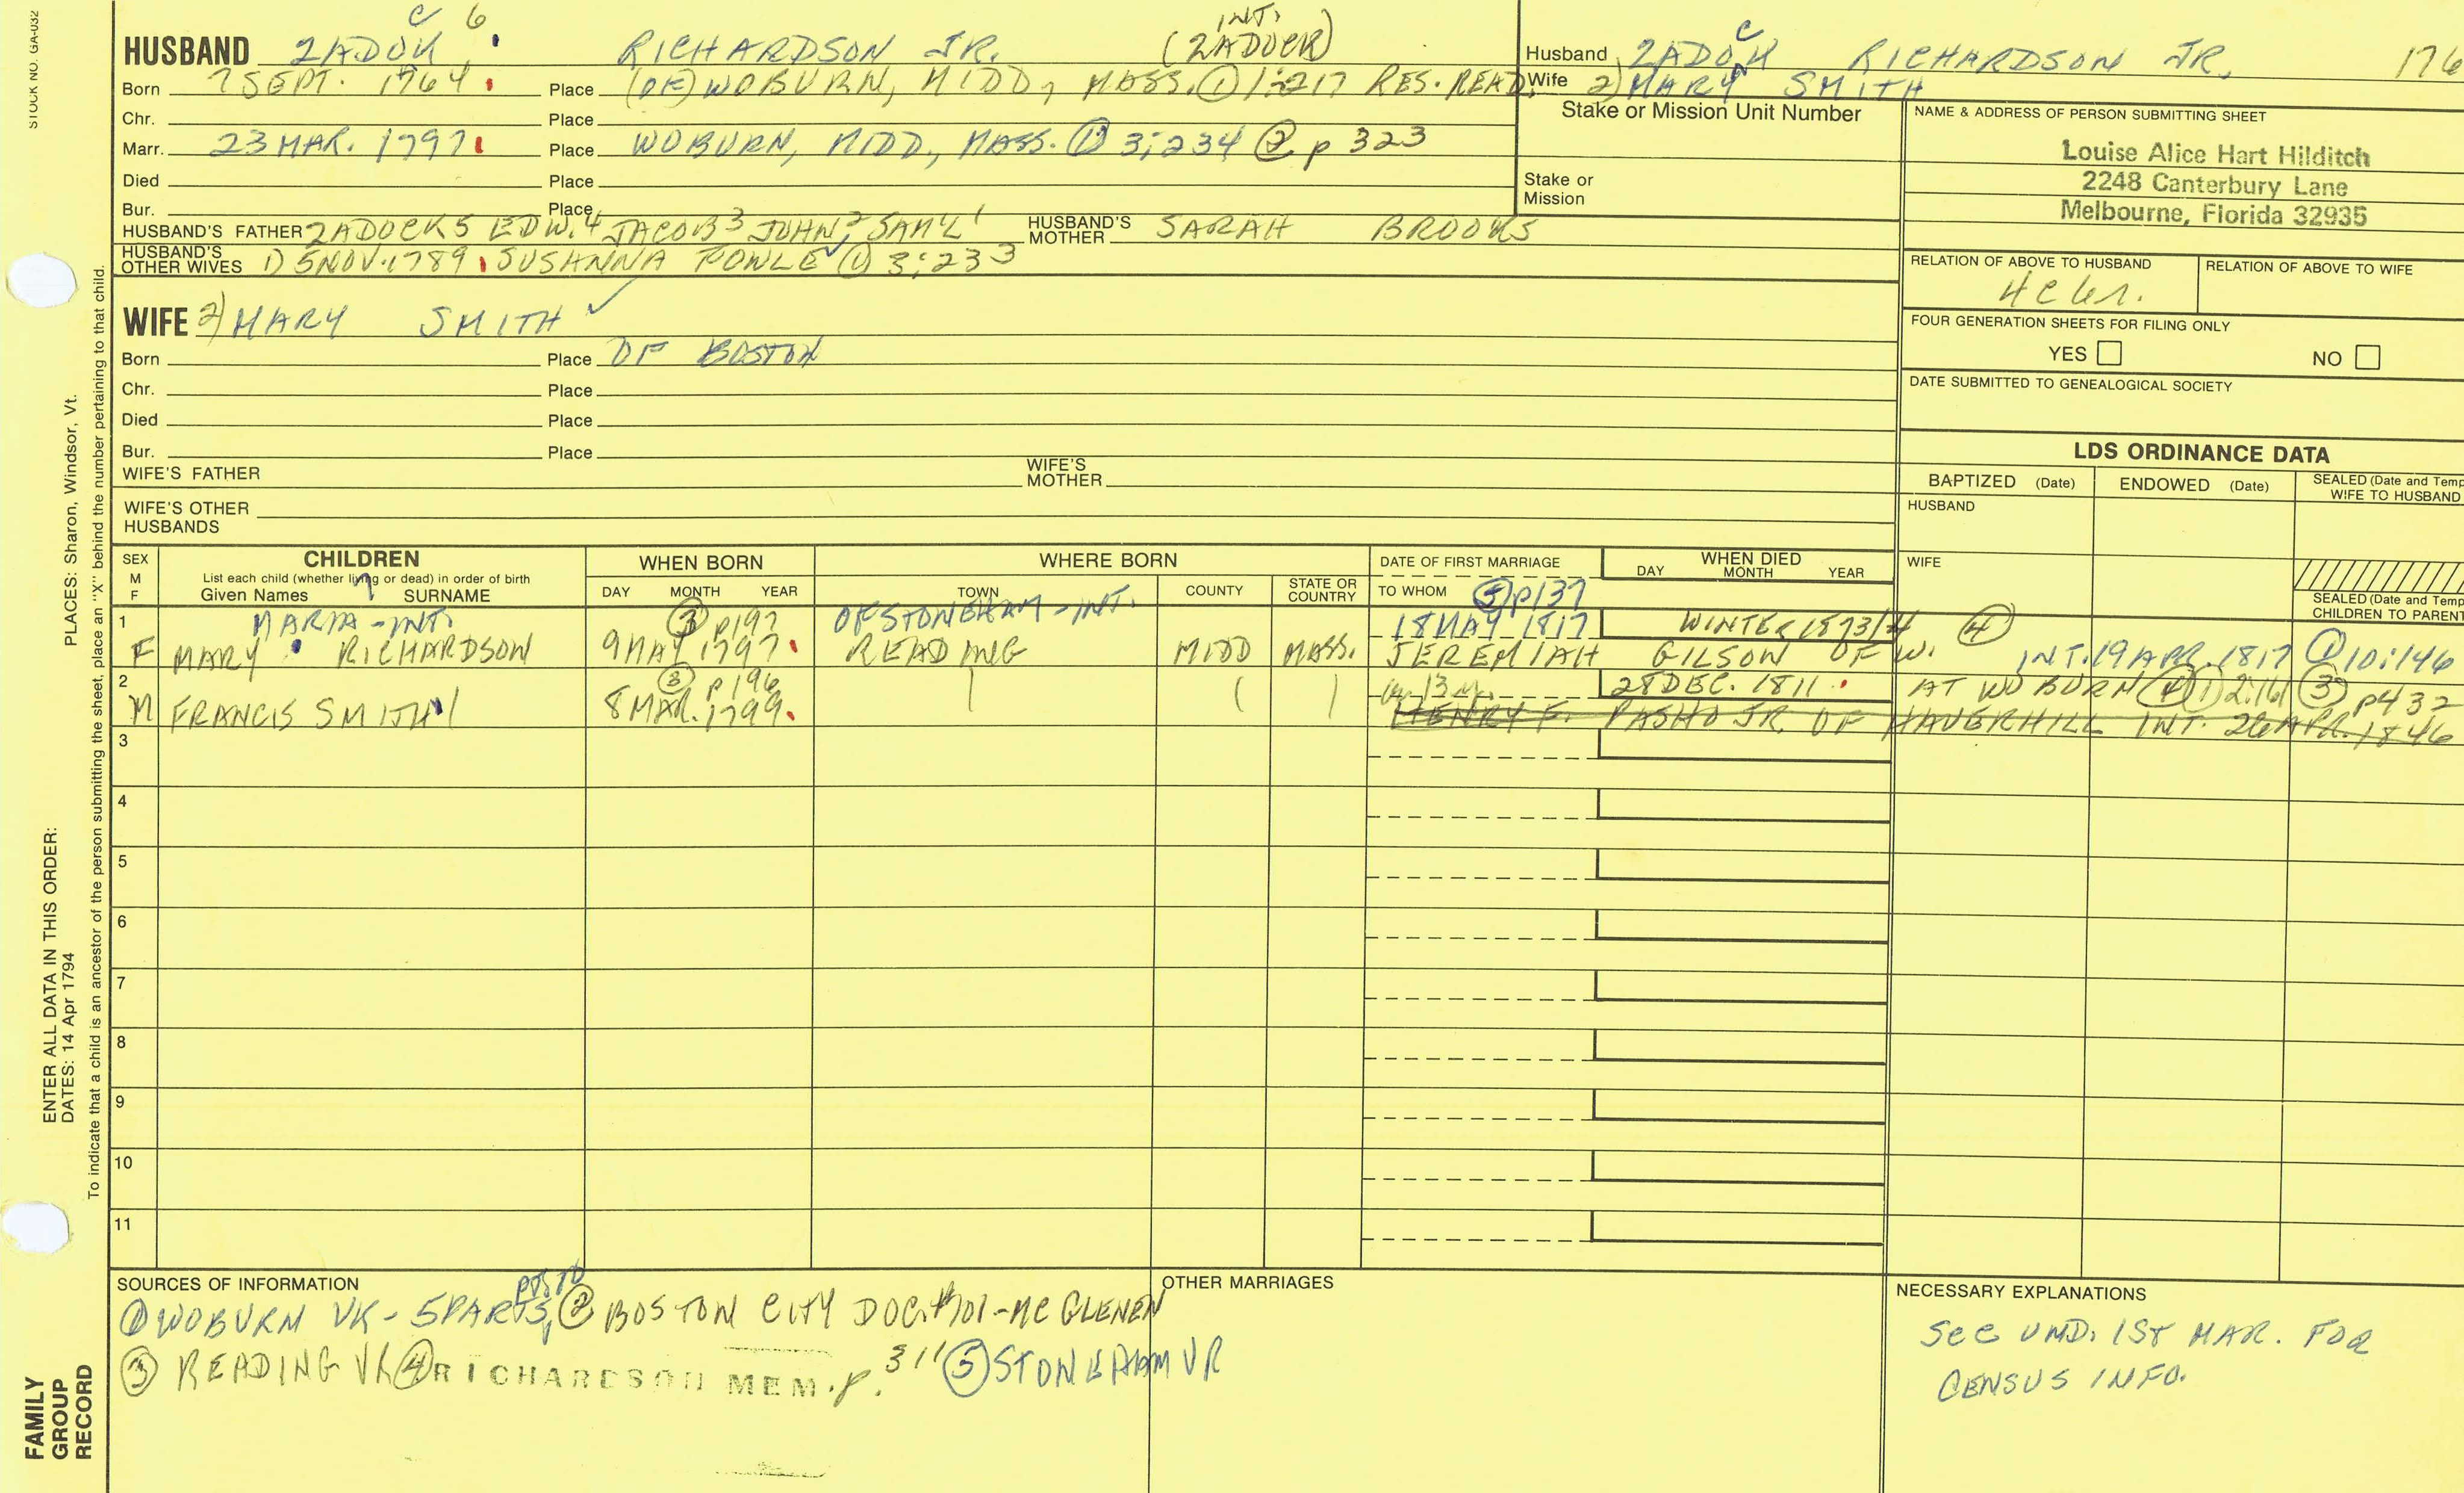 STOCK NO. GA-032
C 6 INT.
HUSBAND ZADOK RICHARDSON JR. (ZADOCK)
Born 7 SEPT. 1764 Place (OF) WOBURN, MIDD, MASS. ① 1:217 RES. READ.
Chr. Place
Marr. 23 MAR. 1797 Place WOBURN, MIDD., MASS. ① 3:234 ② p 323
Died Place
Bur. Place
HUSBAND'S FATHER ZADOCK 5 EDW. 4 JACOB 3 JOHN 2 SAM'L 1 HUSBAND'S MOTHER SARAH BROOKS
HUSBAND'S OTHER WIVES 1) 5 NOV. 1789 SUSANNA FOWLE ① 3:233
WIFE 2) MARY SMITH ✓
Born Place OF BOSTON
Chr. Place
Died Place
Bur. Place
WIFE'S FATHER WIFE'S MOTHER
WIFE'S OTHER HUSBANDS
C
Husband ZADOK RICHARDSON JR. 176
Wife 2) MARY SMITH
Stake or Mission Unit Number
Stake or Mission
NAME & ADDRESS OF PERSON SUBMITTING SHEET
Louise Alice Hart Hilditch
2248 Canterbury Lane
Melbourne, Florida 32935
RELATION OF ABOVE TO HUSBAND RELATION OF ABOVE TO WIFE
FOUR GENERATION SHEETS FOR FILING ONLY
YES NO
DATE SUBMITTED TO GENEALOGICAL SOCIETY
LDS ORDINANCE DATA
BAPTIZED (Date) ENDOWED (Date) SEALED (Date and Temp
WIFE TO HUSBAND
HUSBAND
WIFE
SEALED (Date and Temp
CHILDREN TO PARENT
SEX M F CHILDREN WHEN BORN WHERE BORN DATE OF FIRST MARRIAGE WHEN DIED
List each child (whether living or dead) in order of birth
Given Names SURNAME DAY MONTH YEAR TOWN COUNTY STATE OR COUNTRY TO WHOM DAY MONTH YEAR
⑤ p137
1 MARIA - INT. ③ p197 OF STONEHAM - INT. 18 MAY 1817 WINTER 1873/4 ④
F MARY RICHARDSON 9 MAY 1797 READING MIDD MASS. JEREMIAH GILSON OF W. INT. 19 APR. 1817 ① 10:146
2 ③ p196 28 DEC. 1811 AT WOBURN ④ ① 2:161 ③ p432
M FRANCIS SMITH 8 MAR. 1799 HENRY F. PASHO JR. OF HAVERHILL INT. 26 APR. 1846
3
4
5
6
7
8
9
10
11
SOURCES OF INFORMATION
① WOBURN VR - 5 PARTS, ② BOSTON CITY DOC. #101 - MC GLENEN
③ READING VR ④ RICHARDSON MEM. p. 311 ⑤ STONEHAM VR
OTHER MARRIAGES
NECESSARY EXPLANATIONS
SEE UND. 1ST MAR. FOR
CENSUS INFO.
PLACES: Sharon, Windsor, Vt.
To indicate that a child is an ancestor of the person submitting the sheet, place an "X" behind the number pertaining to that child.
ENTER ALL DATA IN THIS ORDER:
DATES: 14 Apr 1794
FAMILY
GROUP
RECORD